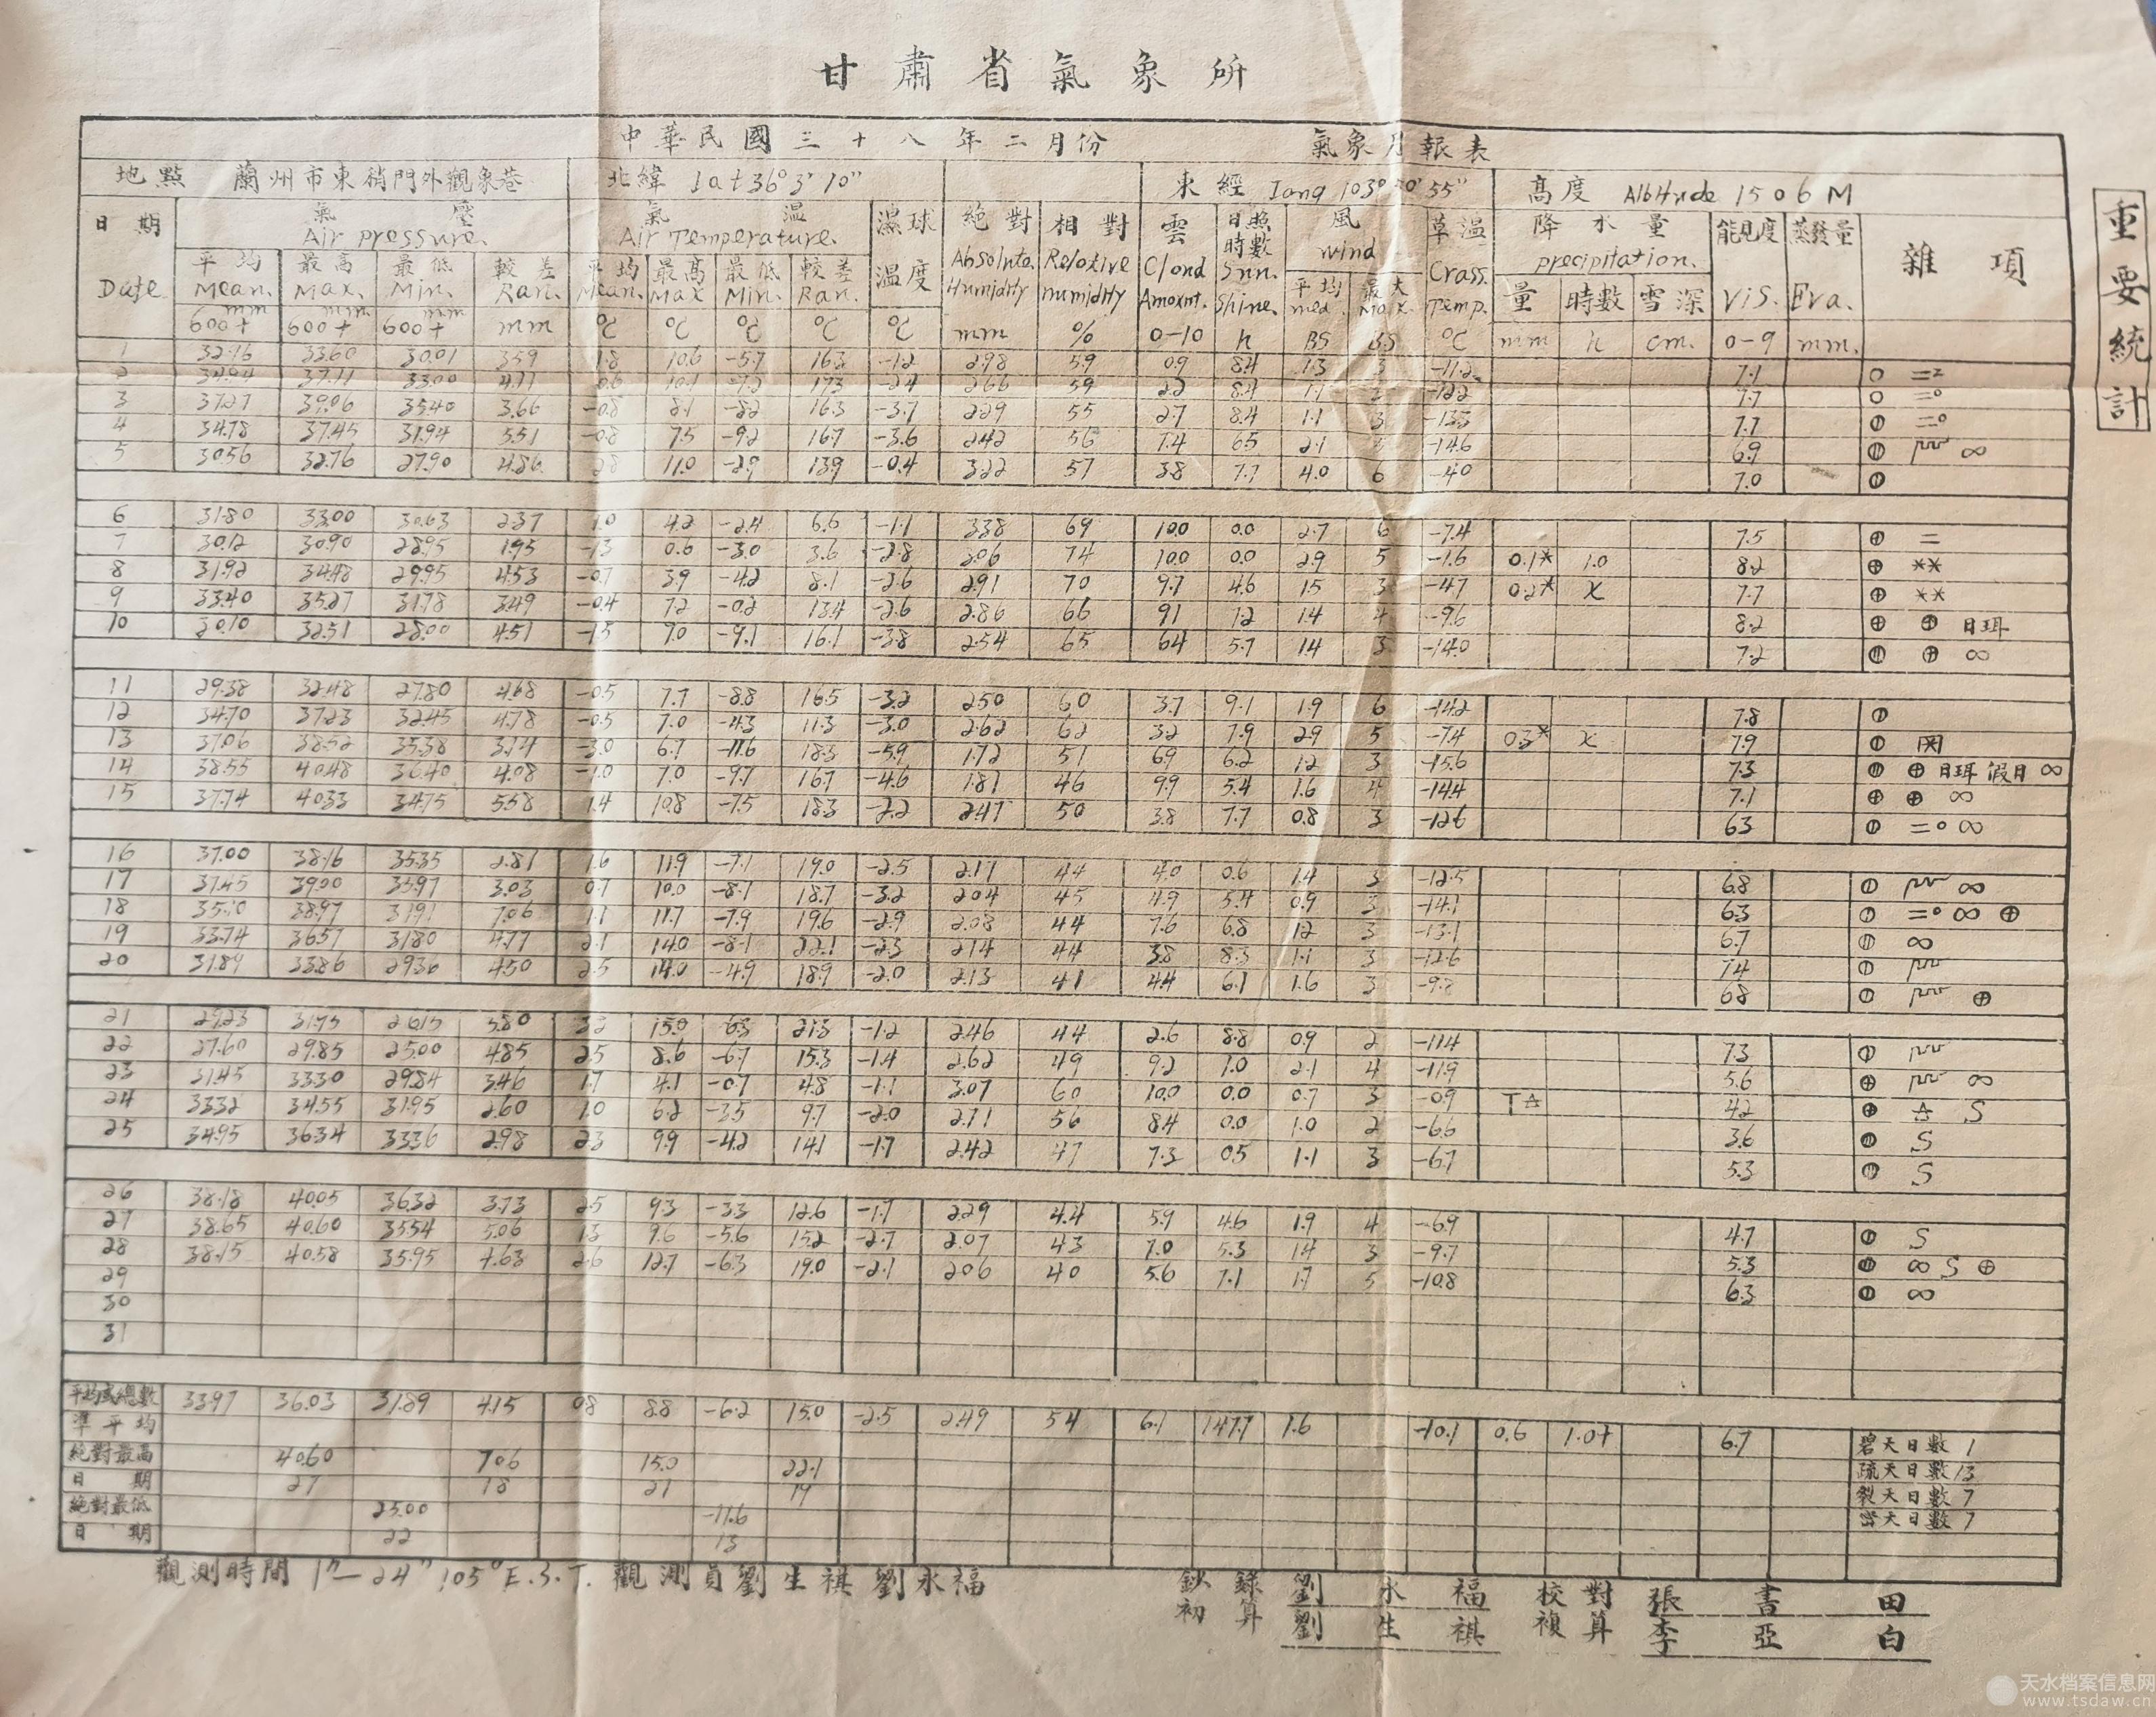 甘肅省氣象所
中華民國三十八年二月份 氣象月報表
地點 蘭州市東稍門外觀象巷 北緯 lat 36°3'10" 東經 Iong 103°50'55" 高度 1506 M
重要統計
日期 Date
氣壓 Air pressure.
平均 Mean. 最高 Max. 最低 Min. 較差 Ran.
氣溫 Air Temperature.
平均 Mean. 最高 Max 最低 Min. 較差 Ran.
濕球溫度
絕對 Humidity
相對 Relative Humidity
雲 Cloud Amount.
日照時數 Sun. Shine.
風 wind
平均 最大 Max.
草溫 Temp.
降水量 precipitation.
量 時數 雪深
能見度 ViS.
蒸發量 Eva.
雜項
mm 600+ mm 600+ mm 600+ mm ℃ ℃ ℃ ℃ ℃ mm % 0-10 h BS BS ℃ mm h cm. 0-9 mm.
1 32.16 33.60 30.01 3.59 1.8 10.6 -5.7 16.3 -1.2 2.98 59 0.9 8.4 1.3 3 -11.2 7.1
2 34.94 37.11 33.00 4.11 0.6 10.1 -7.2 17.3 -2.4 2.66 59 2.2 8.4 1.1 -12.2 7.7
3 37.27 39.06 35.40 3.66 -0.8 8.1 -8.2 16.3 -3.7 2.29 55 2.7 8.4 1.1 3 -13.5 7.7
4 34.78 37.45 31.94 5.51 -0.8 7.5 -9.2 16.7 -3.6 2.42 56 7.4 6.5 2.1 -14.6 6.9 ∞
5 30.56 32.76 27.90 4.86 2.8 11.0 -2.9 13.9 -0.4 3.22 57 3.8 7.7 4.0 6 -4.0 7.0
6 31.80 33.00 30.63 2.37 1.0 4.2 -2.4 6.6 -1.1 3.38 69 10.0 0.0 2.7 6 -7.4 7.5 =
7 30.12 30.90 28.95 1.95 -1.3 0.6 -3.0 3.6 -2.8 74 10.0 0.0 2.9 5 -1.6 0.1* 1.0 8.2 **
8 31.92 34.48 29.95 4.53 -0.7 3.9 -4.2 8.1 -2.6 2.91 70 9.7 4.6 1.5 3 -4.7 0.2* x 7.7 **
9 33.40 35.27 31.78 3.49 -0.4 7.2 13.4 -2.6 2.86 66 9.1 7.2 1.4 4 -9.6 8.2 ⊕ ⊕ 日珥
10 32.51 28.00 4.51 -1.5 7.0 -9.1 16.1 -3.8 2.54 65 6.4 5.7 1.4 3 -14.0 7.2 ⊕ ∞
11 29.38 32.48 27.80 4.68 -0.5 7.7 -8.8 16.5 -3.2 2.50 60 3.7 9.1 1.9 6 -14.2 7.8
12 34.70 37.23 32.45 4.78 -0.5 7.0 -4.3 11.3 -3.0 2.62 62 3.2 7.9 2.9 5 -7.4 0.3* x 7.9
13 37.06 38.52 35.38 3.14 -3.0 6.7 -11.6 18.3 -5.9 1.72 51 6.9 6.2 1.2 3 -15.6 7.3 ⊕ 日珥 假日 ∞
14 38.55 40.48 36.40 4.08 -1.0 7.0 -9.7 16.7 -4.6 1.81 46 9.9 5.4 1.6 4 -14.4 7.1 ⊕ ⊕ ∞
15 37.74 40.33 34.75 5.58 1.4 10.8 -7.5 18.3 -2.2 2.47 50 3.8 7.7 0.8 3 -12.6 6.3 =° ∞
16 37.00 38.16 35.35 2.81 1.6 11.9 -7.1 19.0 -2.5 2.17 44 4.0 0.6 1.4 3 -12.5 6.8 ∞
17 37.45 39.00 35.97 3.03 0.7 10.0 -8.7 18.7 -3.2 2.04 45 4.9 5.4 0.9 3 -14.1 6.3 =° ∞ ⊕
18 38.97 31.91 7.06 1.1 11.7 -7.9 19.6 -2.9 2.08 44 7.6 6.8 1.2 3 -13.1 6.7 ∞
19 33.74 36.57 31.80 4.77 2.1 14.0 -8.1 22.1 -2.3 2.14 44 3.8 8.3 1.1 3 -12.6 7.4
20 31.89 33.86 29.36 4.50 2.5 14.0 -4.9 18.9 -2.0 2.13 41 4.4 6.1 1.6 3 -9.8 6.8 ⊕
21 29.23 31.95 26.15 5.80 3.2 15.0 -6.3 21.3 -1.2 2.46 44 2.6 8.8 0.9 2 -11.4 7.3
22 27.60 29.85 25.00 4.85 2.5 8.6 -6.7 15.3 -1.4 2.62 49 9.2 1.0 2.1 4 -11.9 5.6 ∞
23 31.45 33.30 29.84 3.46 1.7 4.1 -0.7 4.8 -1.1 3.07 60 10.0 0.0 0.7 3 -0.9 4.2 S
24 33.32 34.55 31.95 2.60 1.0 6.2 -3.5 9.7 -2.0 2.71 56 8.4 0.0 1.0 2 -6.6 3.6 S
25 34.95 36.34 33.36 2.98 2.3 9.9 -4.2 14.1 -1.7 2.42 47 7.3 0.5 1.1 3 -6.7 5.3 S
26 38.18 40.05 36.32 3.73 2.5 9.3 -3.3 12.6 -1.7 2.29 4.4 5.9 4.6 1.9 4 -6.9 4.7 S
27 38.65 40.60 35.54 5.06 1.3 9.6 -5.6 15.2 -2.7 2.07 43 7.0 5.3 1.4 3 -9.7 5.3 ∞ S ⊕
28 38.15 40.58 35.95 4.63 2.6 12.7 -6.3 19.0 -2.1 2.06 40 5.6 7.1 1.7 5 -10.8 6.3 ∞
29
30
31
平均或總數 33.97 36.03 31.89 4.15 0.8 8.8 -6.2 15.0 -2.5 2.49 54 6.1 147.7 1.6 -10.1 0.6 1.0+ 6.7
準平均 碧天日數 1
絕對最高 40.60 7.06 15.0 22.1 疏天日數 13
日期 27 18 21 19 裂天日數 7
絕對最低 25.00 -11.6 密天日數 7
日期 22 13
觀測時間 1h—24h 105°E.S.T. 觀測員劉生祺 劉永福
鈔錄 劉永福 校對 張書田
初算 劉生祺 複算 李亞白
天水档案信息网
www.tsdaw.cn